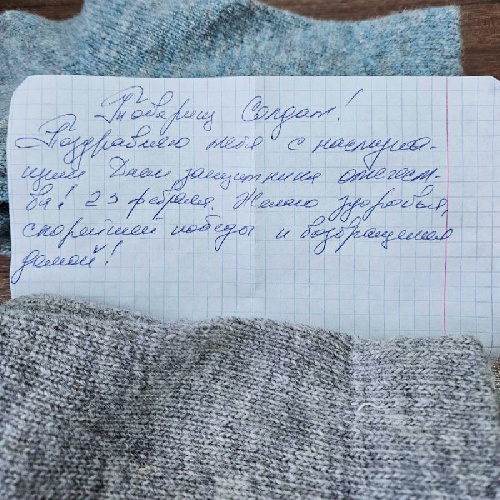 Товарищ Солдат!
Поздравляю тебя с наступаю-
щим Днём защитника отечест-
ва! 23 февраля. Желаю здоровья,
скорейшей победы и возвращения
домой!